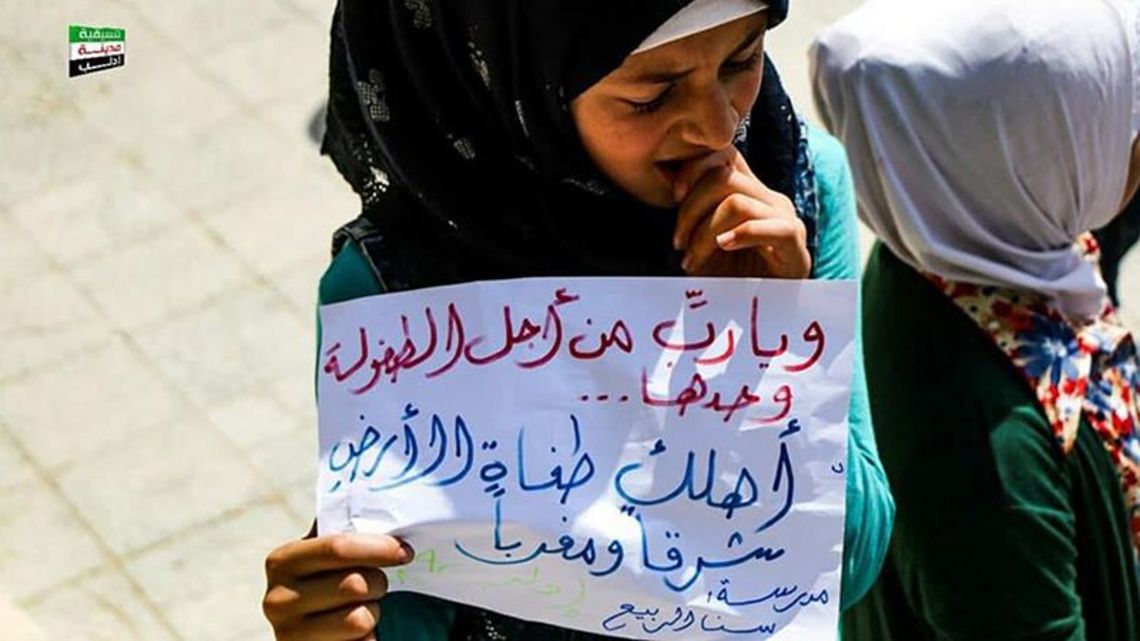 تنسيقية
مدينة
ادلب
ويا ربِّ من أجل الطفولة
وحدها...
أهلك طغاة الأرض
شرقاً ومغرباً
مدرسة:
سنا الربيع
إدلب